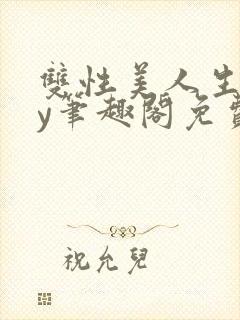 雙性美人生
y筆趣閣免費
祝允兒